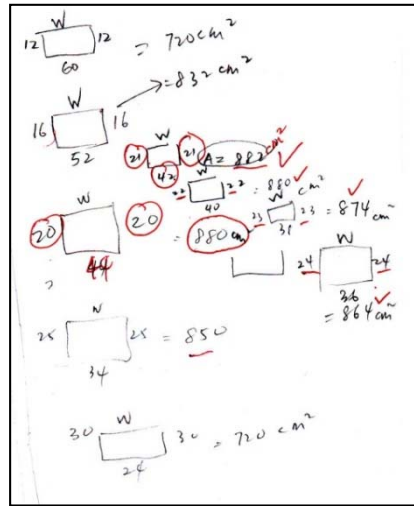 W
12 12 = 720 cm²
60
W
16 16 = 832 cm²
52
W
21 21 A = 882 cm²
42
W
22 22 = 880 cm²
40
W
20 20 = 880 cm
44
W
23 23 = 874 cm²
W
24 24
36
= 864 cm²
W
25 25 = 850
34
W
30 30 = 720 cm²
24